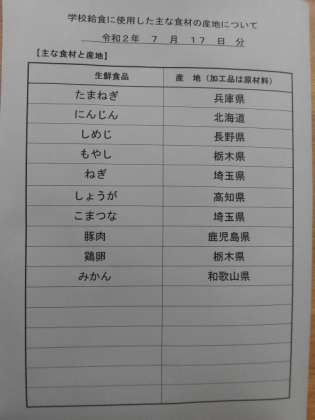 学校給食に使用した主な食材の産地について
令和2年 7月 17日 分
【主な食材と産地】
生鮮食品 産 地（加工品は原材料）
たまねぎ 兵庫県
にんじん 北海道
しめじ 長野県
もやし 栃木県
ねぎ 埼玉県
しょうが 高知県
こまつな 埼玉県
豚肉 鹿児島県
鶏卵 栃木県
みかん 和歌山県